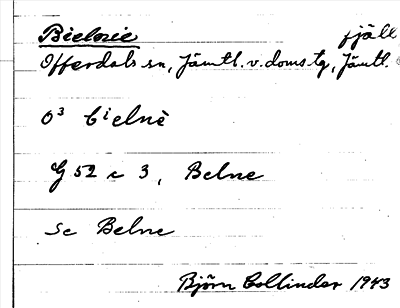 Bielnie fjäll
Offerdals sn, Jämtl. v. doms tg, Jämtl.
O³ bielnè
G 52 c 3, Belne
Se Belne
Björn Collinder 1943